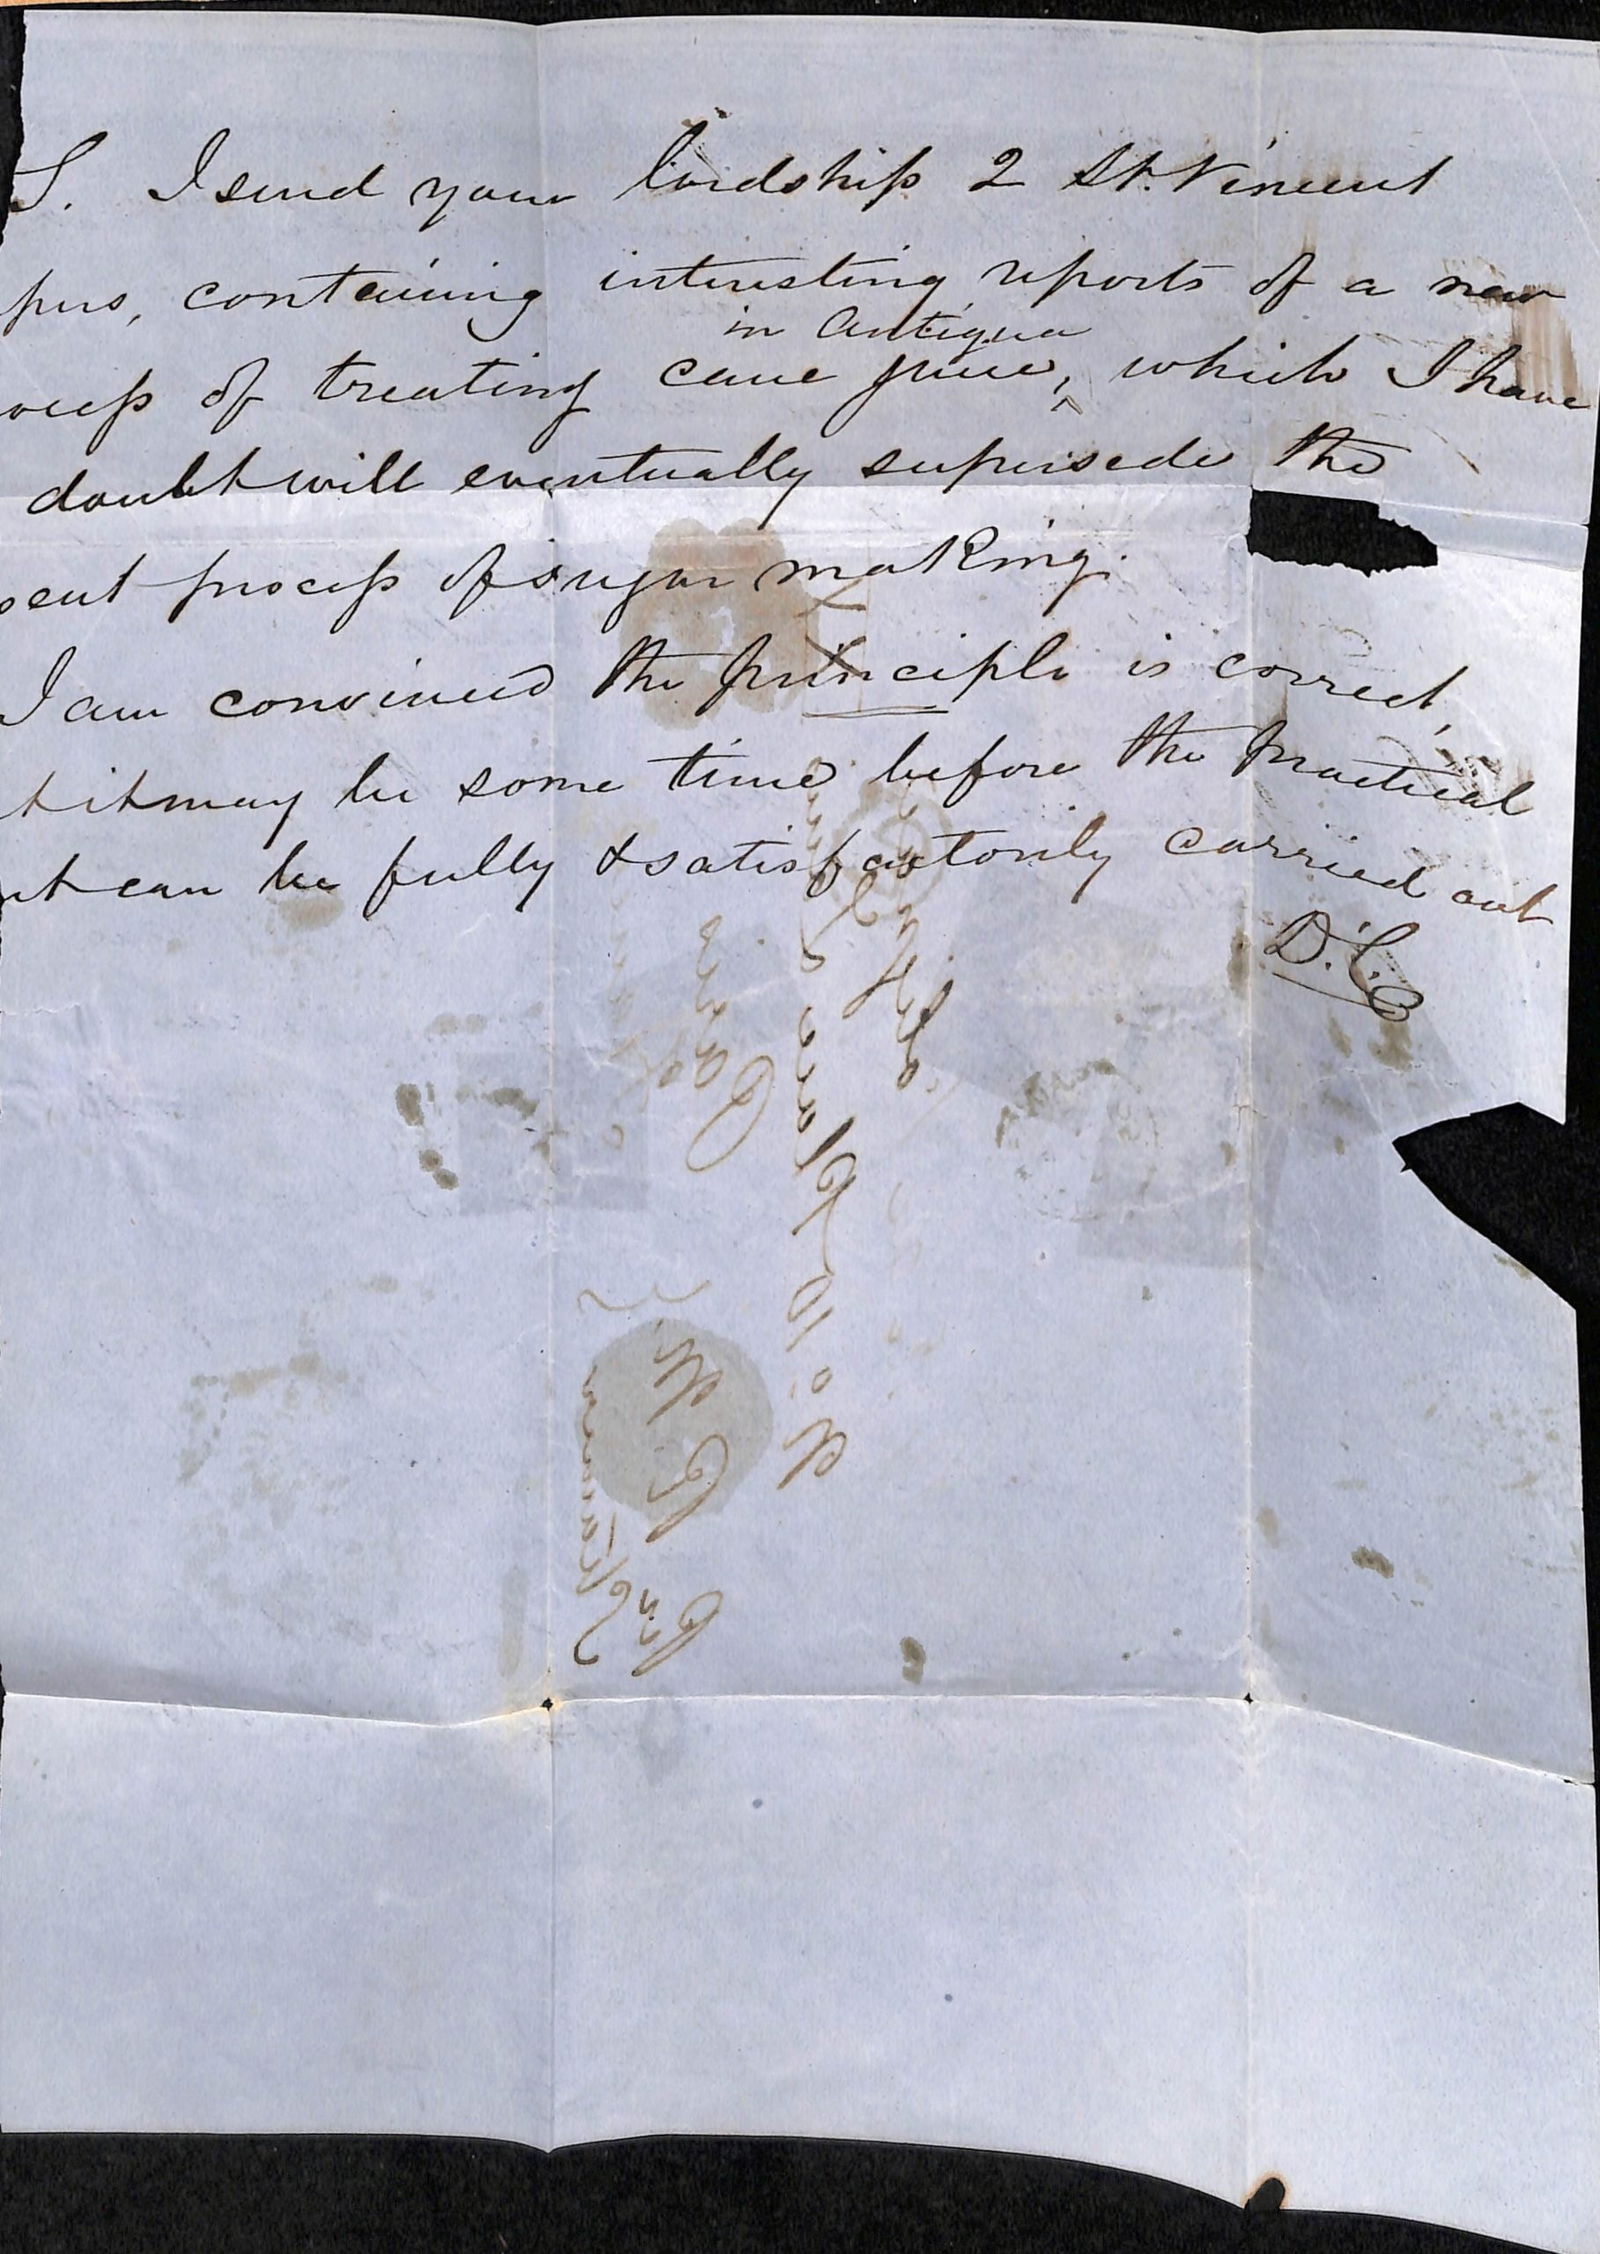 S. I send your lordship 2 St. Vincent
pers, containing interesting reports of a new
in Antigua
ocess of treating cane juice, which I have
doubt will eventually supersede the
sent process of sugar making.
I am convinced the principle is correct,
t it may be some time before the practical
rt can be fully & satisfactorily carried out
D.C.